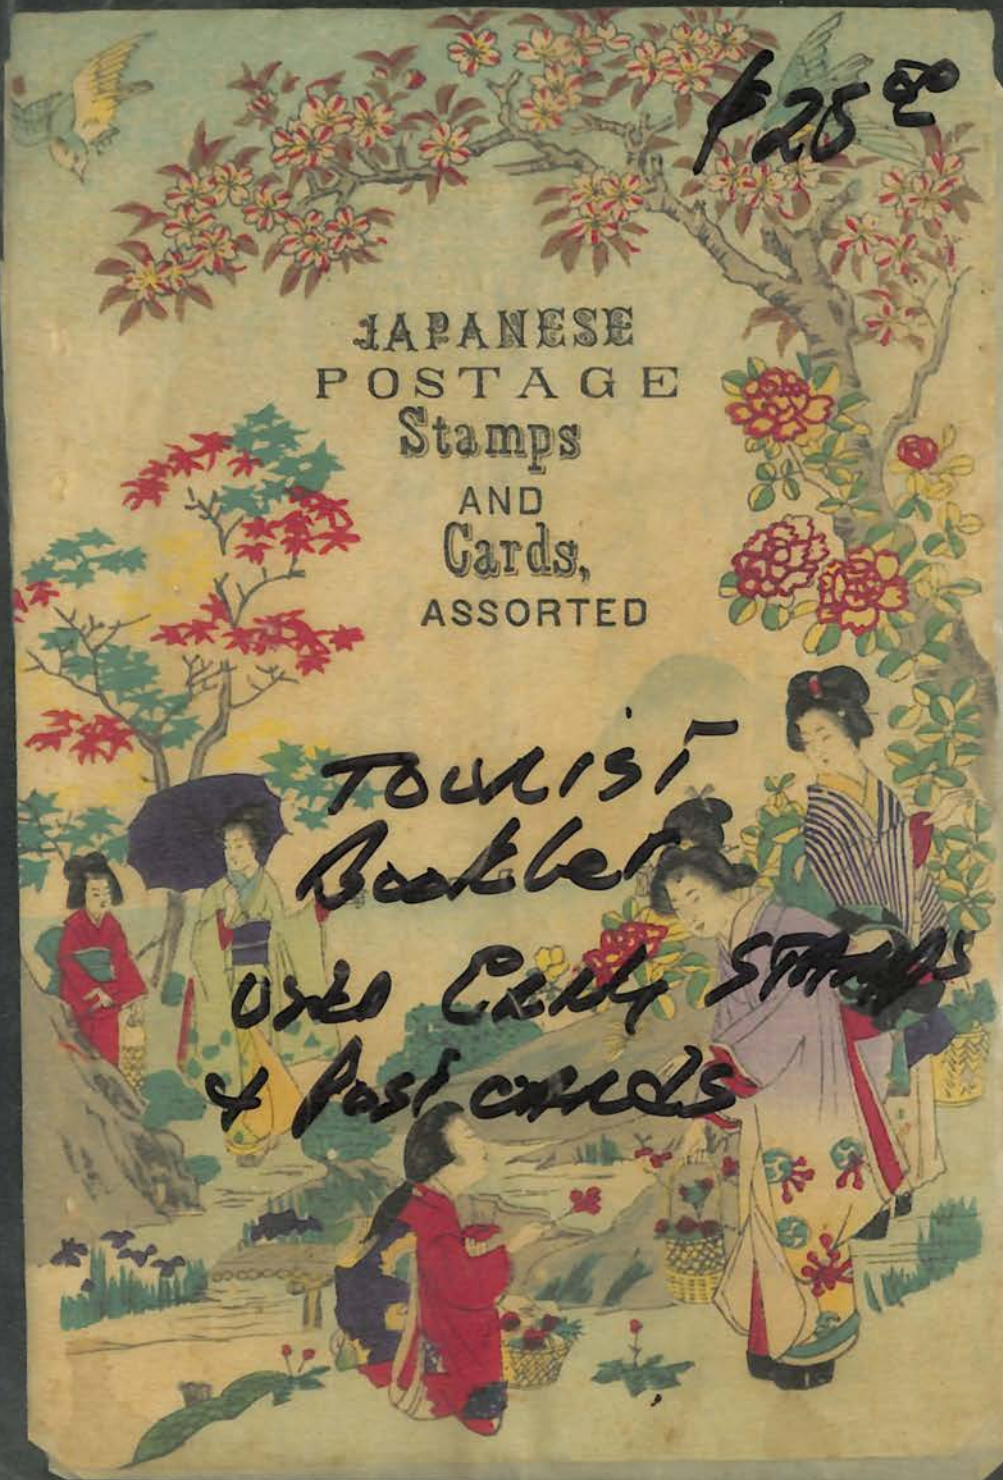 $25 00
JAPANESE
POSTAGE
Stamps
AND
Cards,
ASSORTED
TOURIST
Booklet
USED EARLY STAMPS
& Post cards